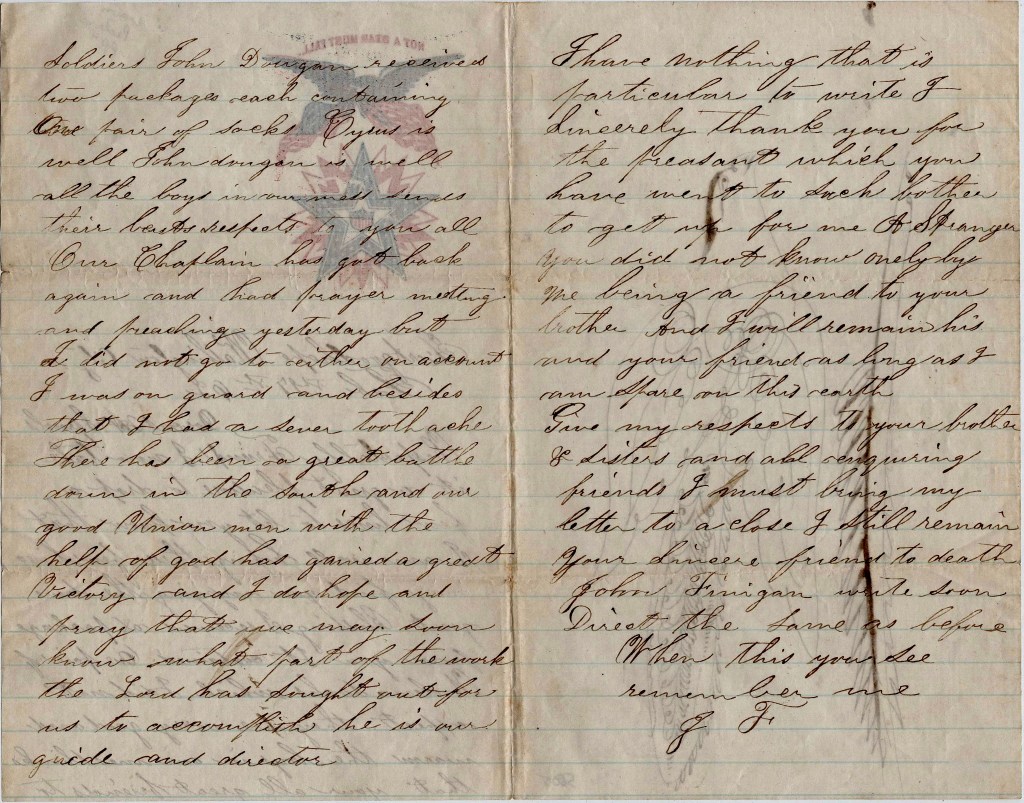 NOT A STAR MUST FALL
Soldiers John Dougan received
two packages each containing
One pair of socks Cyrus is
well John dougan is well
all the boys in our mess sends
their bests respects to you all
Our Chaplain has got back
again and had prayer meeting
and preaching yesterday but
I did not go to either on account
I was on guard and besides
that I had a sever tooth ache
There has been a great battle
down in the South and our
good Union men with the
help of god has gained a great
Victory and I do hope and
pray that we may soon
know what part of the work
the Lord has sought out for
us to accomplish he is our
guide and director
I have nothing that is
particular to write I
Sincerely thank you for
the preasant which you
have went to such bother
to get up for me A Stranger
you did not know onely by
me being a friend to your
brother And I will remain his
and your friend as long as I
am spare on this earth
Give my respects to your brother
& sisters and all enquiring
friends I must bring my
letter to a close I still remain
Your Sincere friend to death
John Finigan write soon
Direct the same as before
When this you see
remember me
J F